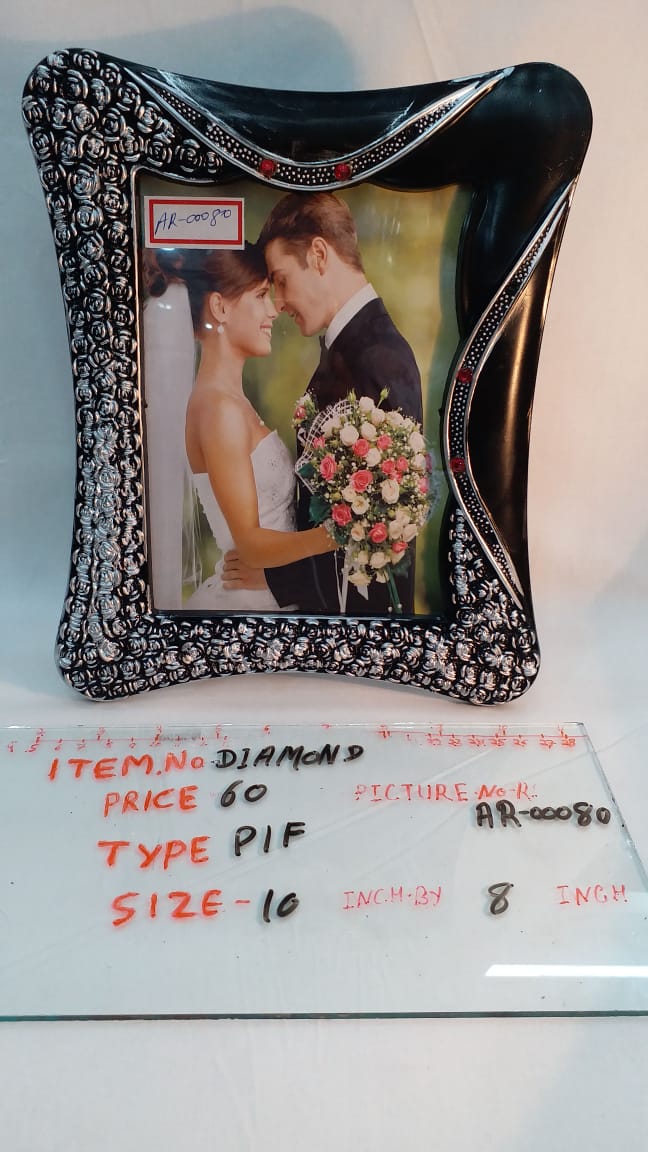 AR-00080
ITEM.No DIAMOND
PRICE 60 PICTURE No-R.
AR-00080
TYPE PIF
SIZE-10 INCH-BY 8 INCH